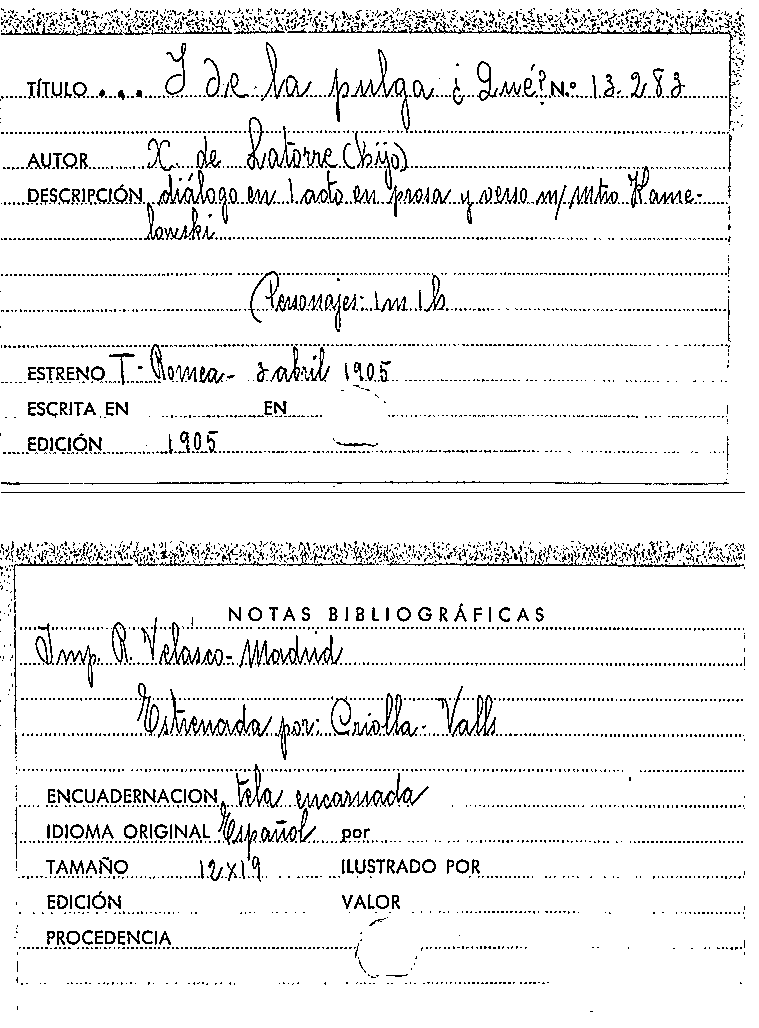 TÍTULO ... Y de la pulga ¿Qué? N.º 13.283
AUTOR X. de Latorre (hijo)
DESCRIPCIÓN diálogo en 1 acto en prosa y verso m/ mtro Kame-
lowski
Personajes: 1m 1h
ESTRENO T. Romea - abril 1905
ESCRITA EN EN
EDICIÓN 1905
NOTAS BIBLIOGRÁFICAS
Imp. R. Velasco - Madrid
Estrenada por: Criolla - Valls
ENCUADERNACION tela encarnada
IDIOMA ORIGINAL Español por
TAMAÑO 12x19 ILUSTRADO POR
EDICIÓN VALOR
PROCEDENCIA